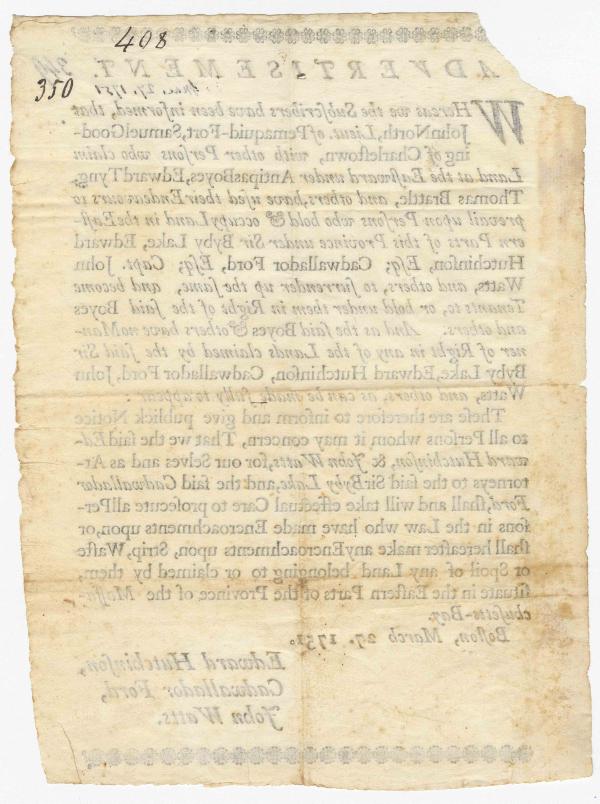 408
350
ADVERTISEMENT.
27, 1751
WHereas we the Subſcribers have been informed, that
John North, Lieut. of Pemaquid-Fort, Samuel Good-
ing of Charleſtown, with other Perſons who claim
Land at the Eaſtward under Antipas Boyes, Edward Tyng,
Thomas Brattle, and others, have uſed their Endeavours to
prevail upon Perſons who hold & occupy Land in the Eaſt-
ern Parts of this Province under Sir Byby Lake, Edward
Hutchinſon, Eſq; Cadwallador Ford, Eſq; Capt. John
Watts, and others, to ſurrender up the ſame, and become
Tenants to, or hold under them in Right of the ſaid Boyes
and others: And as the ſaid Boyes & others have no Man-
ner of Right in any of the Lands claimed by the ſaid Sir
Byby Lake, Edward Hutchinſon, Cadwallador Ford, John
Watts, and others, as can be made fully to appear:
Theſe are therefore to inform and give publick Notice
to all Perſons whom it may concern, That we the ſaid Ed-
ward Hutchinſon, & John Watts, for our Selves and as At-
torneys to the ſaid Sir Byby Lake, and the ſaid Cadwallador
Ford, ſhall and will take effectual Care to proſecute all Per-
ſons in the Law who have made Encroachments upon, or
ſhall hereafter make any Encroachments upon, Strip, Waſte
or Spoil of any Land belonging to or claimed by them,
ſituate in the Eaſtern Parts of the Province of the Maſſa-
chuſetts-Bay.
Boſton, March 27. 1751.
Edward Hutchinſon,
Cadwallador Ford,
John Watts.